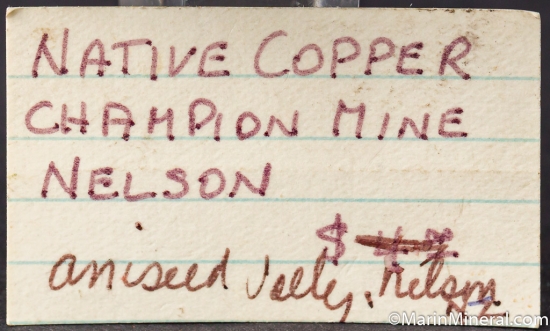 NATIVE COPPER
CHAMPION MINE
NELSON
$
aniseed Valley, Nelson
©MarinMineral.com